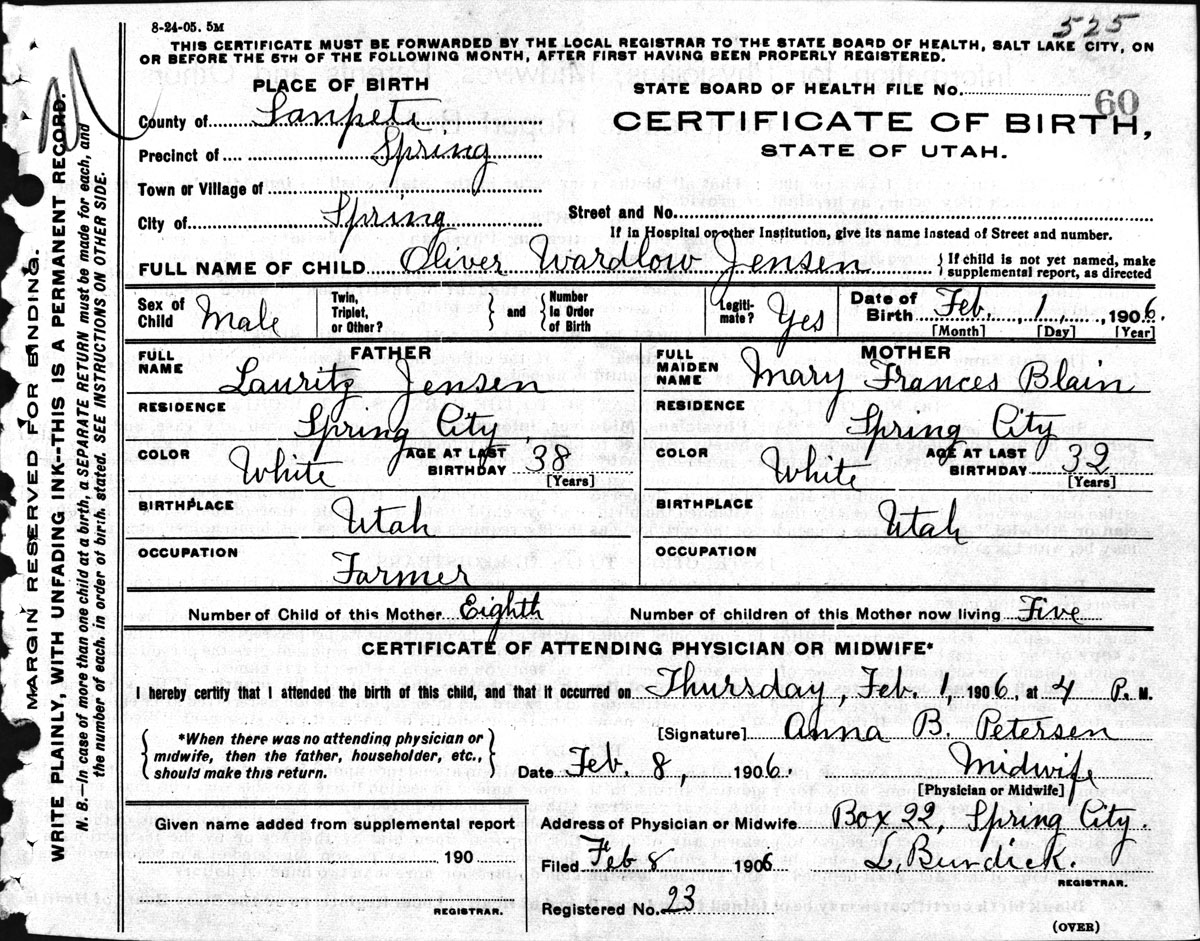 8-24-05. 5M
525
THIS CERTIFICATE MUST BE FORWARDED BY THE LOCAL REGISTRAR TO THE STATE BOARD OF HEALTH, SALT LAKE CITY, ON
OR BEFORE THE 5TH OF THE FOLLOWING MONTH, AFTER FIRST HAVING BEEN PROPERLY REGISTERED.
MARGIN RESERVED FOR BINDING.
WRITE PLAINLY, WITH UNFADING INK--THIS IS A PERMANENT RECORD.
N. B.—In case of more than one child at a birth, a SEPARATE RETURN must be made for each, and
the number of each, in order of birth, stated. SEE INSTRUCTIONS ON OTHER SIDE.
PLACE OF BIRTH
County of Sanpete
Precinct of Spring
Town or Village of
City of Spring
STATE BOARD OF HEALTH FILE No. 60
CERTIFICATE OF BIRTH,
STATE OF UTAH.
Street and No.
If in Hospital or other Institution, give its name instead of Street and number.
FULL NAME OF CHILD Oliver Wardlow Jensen { If child is not yet named, make
supplemental report, as directed
Sex of Child Male
Twin, Triplet, or Other? } and { Number In Order of Birth
Legiti-mate? Yes
Date of Birth Feb. 1, 1906.
[Month] [Day] [Year]
FATHER
FULL NAME Lauritz Jensen
RESIDENCE Spring City
COLOR White AGE AT LAST BIRTHDAY 38
[Years]
BIRTHPLACE Utah
OCCUPATION Farmer
MOTHER
FULL MAIDEN NAME Mary Frances Blain
RESIDENCE Spring City
COLOR White AGE AT LAST BIRTHDAY 32
[Years]
BIRTHPLACE Utah
OCCUPATION
Number of Child of this Mother Eighth Number of children of this Mother now living Five
CERTIFICATE OF ATTENDING PHYSICIAN OR MIDWIFE*
I hereby certify that I attended the birth of this child, and that it occurred on Thursday, Feb. 1 1906. at 4 P. M.
*When there was no attending physician or
midwife, then the father, householder, etc.,
should make this return.
[Signature] Anna B. Petersen
Date Feb. 8, 1906. Midwife
[Physician or Midwife]
Given name added from supplemental report
190
REGISTRAR.
Address of Physician or Midwife Box 22, Spring City.
Filed Feb 8 1906 L. Burdick.
REGISTRAR.
Registered No. 23
(OVER)